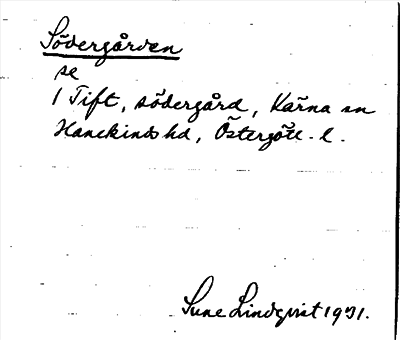 Södergården
se
1 Tift, södergård, Kärna sn
Hanekinds hd, Östergötl. l.
Sune Lindqvist 1931.